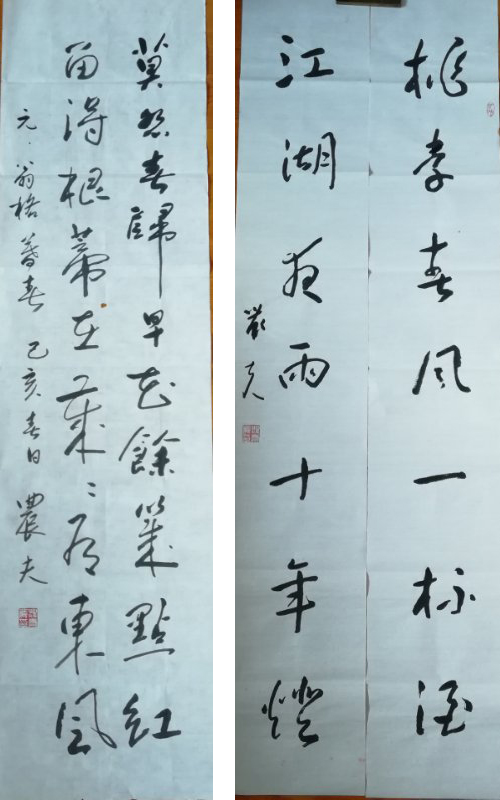 莫怨春歸早花餘幾點紅
留得根蒂在歲〻有東風
元、翁格暮春 己亥春日 農夫
桃李春风一杯酒
江湖夜雨十年燈
農夫